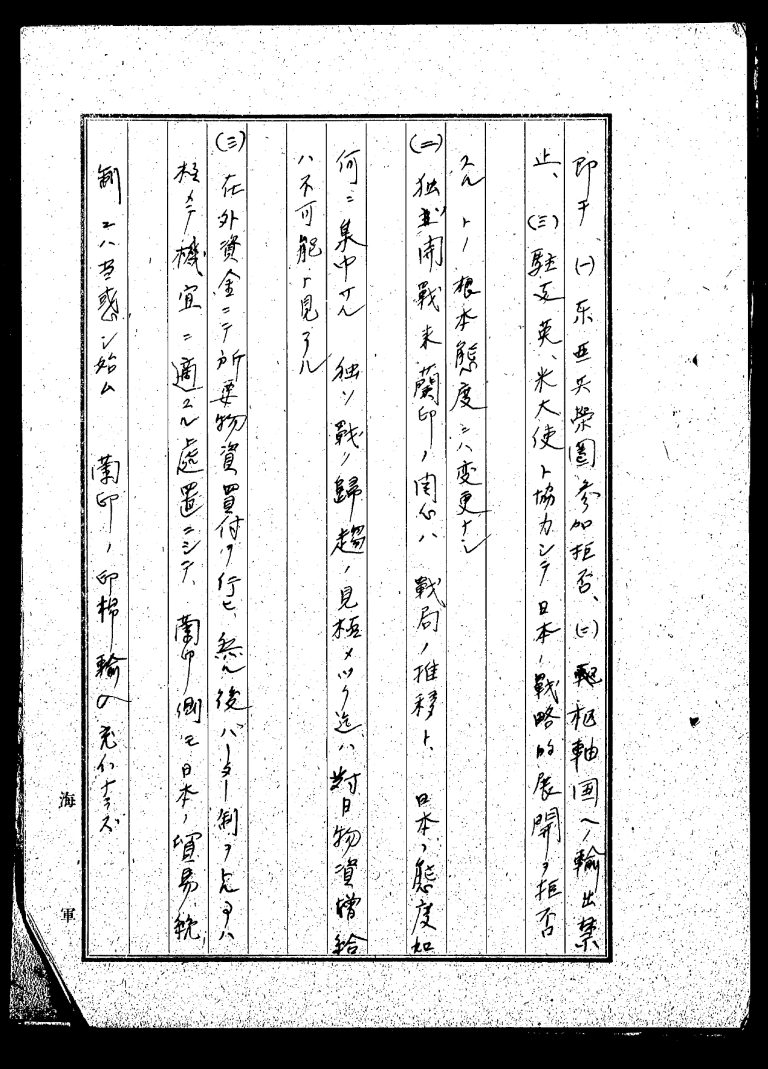 即チ、(一)东亜共榮圏参加拒否、(二)枢軸国ヘノ輸出禁
止、(三)駐支英、米大使ト協力シテ日本ノ戰略的展開ヲ拒否
スルトノ根本態度ニハ変更ナシ
(二)独ソ開戰来蘭印ノ関心ハ戰局ノ推移ト、日本ノ態度如
何ニ集中サル 独ソ戰ノ歸趨ノ見極メツク迄ハ対日物資増給
ハ不可能ト見ラル
(三)在外資金ニテ所要物資買付ヲ行ヒ、然ル後バーター制ヲ
極メテ機宜ニ適スル處置ニシテ、蘭印側モ日本ノ貿易統
制ニハ当惑シ始ム 蘭印ノ印棉輸入意ノ如クナラズ
海軍